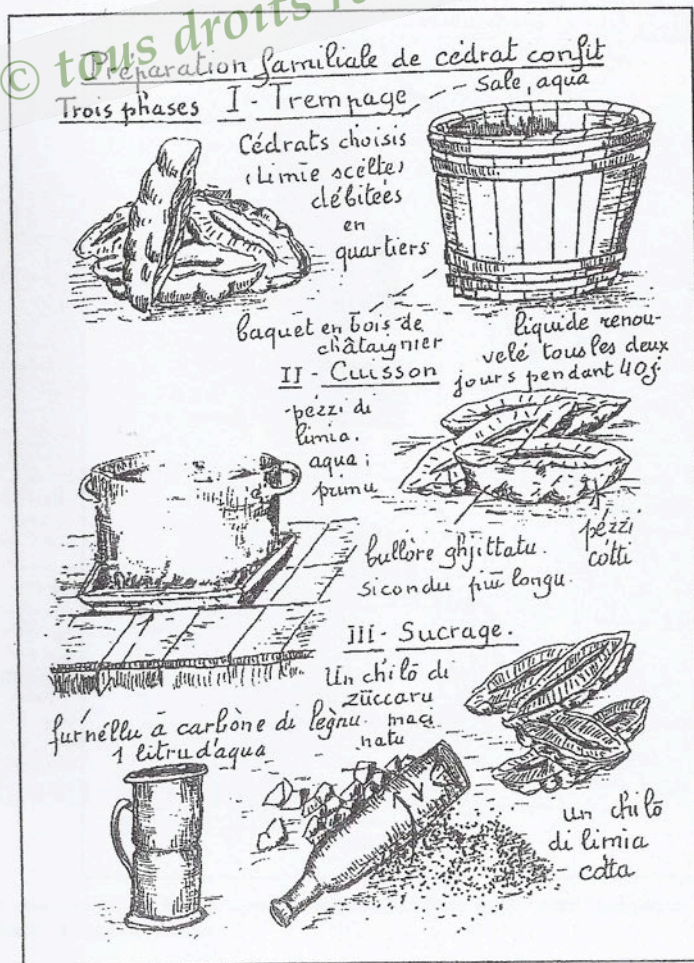 © tous droits
Préparation familiale de cédrat confit
Trois phases I - Trempage
Sale, aqua
Cédrats choisis
(Limie scélte)
débitées
en
quartiers
baquet en bois de
châtaignier
liquide renou-
velé tous les deux
jours pendant 40j.
II - Cuisson
-pézzi di
limia.
aqua ;
primu
bullòre ghjittatu.
sicondu più longu.
pézzi
còtti
III - Sucrage.
Un chilò di
züccaru
maci
natu
furnéllu à carbòne di lègnu.
1 litru d'aqua
un chilò
di limia
còtta